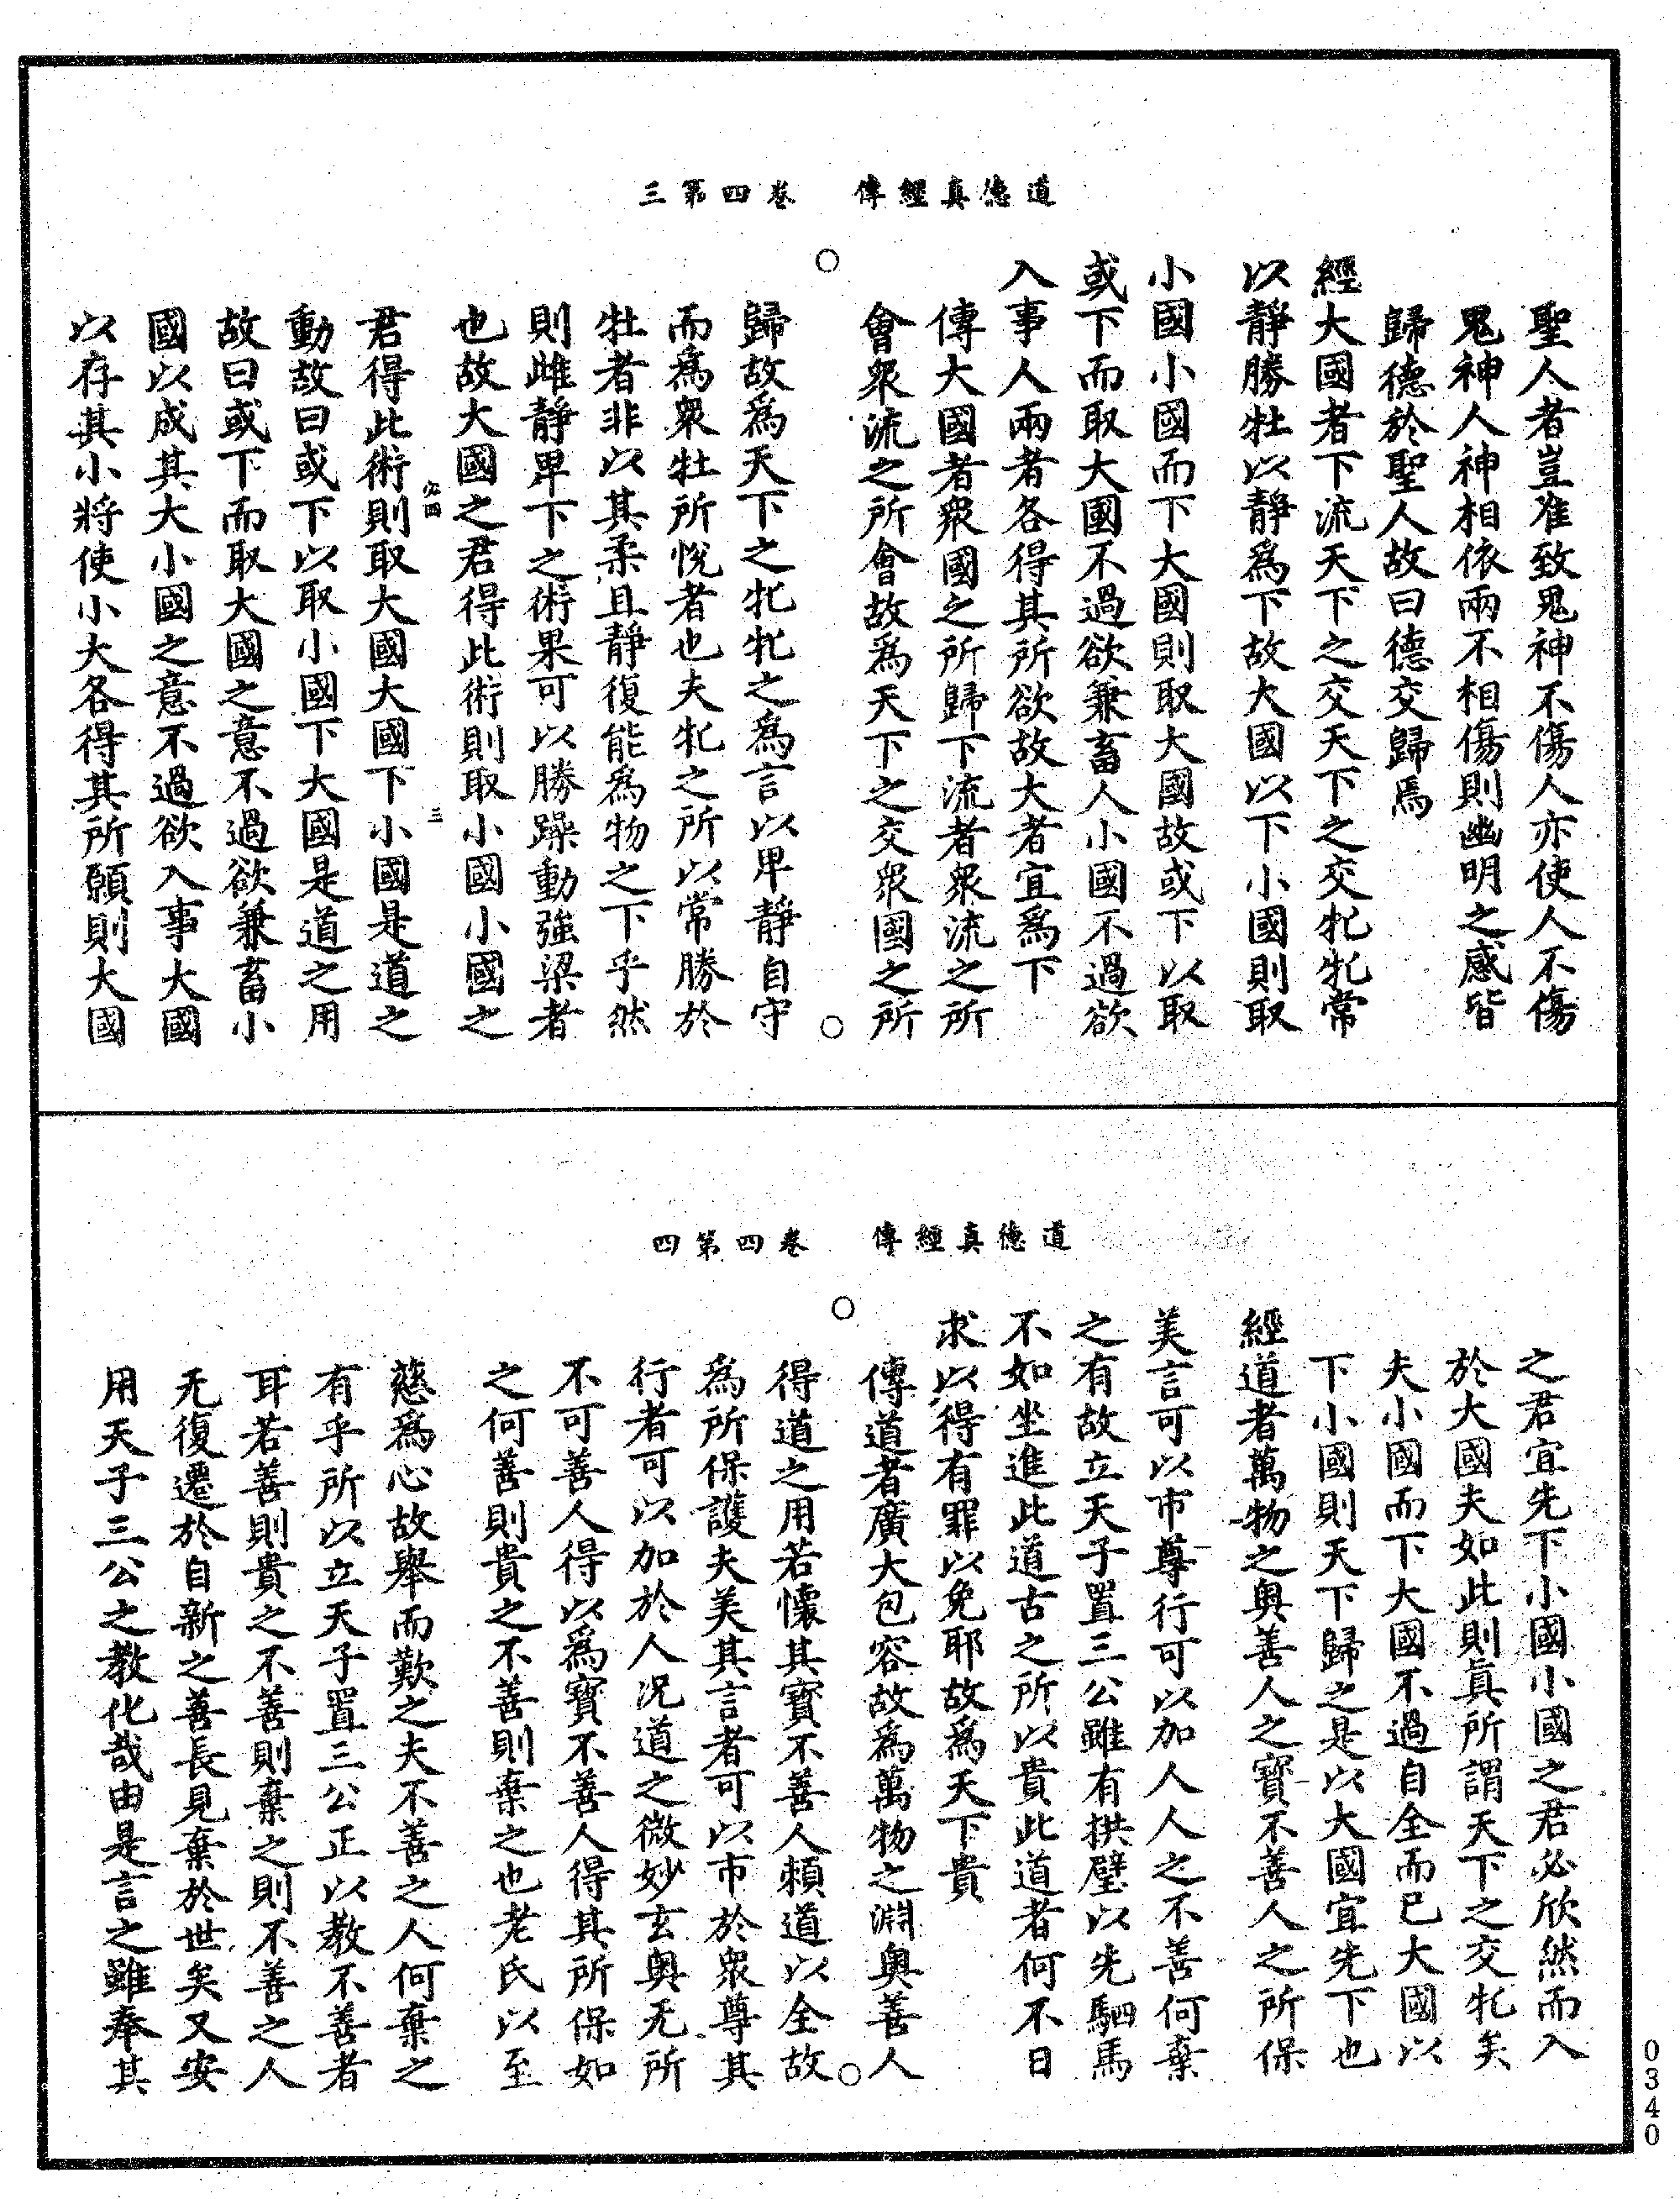 道德真經傳　卷四第三
聖人者豈准致鬼神不傷人亦使人不傷
鬼神人神相依兩不相傷則幽明之感皆
歸德於聖人故曰德交歸焉
經大國者下流天下之交天下之交牝牝常
以靜勝牡以靜爲下故大國以下小國則取
小國小國而下大國則取大國故或下以取
或下而取大國不過欲兼畜人小國不過欲
入事人兩者各得其所欲故大者宜爲下
傳大國者衆國之所歸下流者衆流之所
會衆流之所會故爲天下之交衆國之所
歸故爲天下之牝牝之爲言以卑靜自守
而爲衆牡所悅者也夫牝之所以常勝於
牡者非以其柔且靜復能爲物之下乎然
則雌靜卑下之術果可以勝躁動強梁者
也故大國之君得此術則取小國小國之
君得此術則取大國大國下小國是道之
動故曰或下以取小國下大國是道之用
故曰或下而取大國之意不過欲兼畜小
國以成其大小國之意不過欲入事大國
以存其小將使小大各得其所願則大國
道德真經傳　卷四第四
之君宜先下小國小國之君必欣然而入
於大國夫如此則眞所謂天下之交牝矣
夫小國而下大國不過自全而已大國以
下小國則天下歸之是以大國宜先下也
經道者萬物之奧善人之寶不善人之所保
美言可以市尊行可以加人人之不善何棄
之有故立天子置三公雖有拱璧以先駟馬
不如坐進此道古之所以貴此道者何不日
求以得有罪以免耶故爲天下貴
傳道者廣大包容故爲萬物之淵奧善人
得道之用若懷其寶不善人賴道以全故
爲所保護夫美其言者可以市於衆尊其
行者可以加於人況道之微妙玄奧无所
不可善人得以爲寶不善人得其所保如
之何善則貴之不善則棄之也老氏以至
慈爲心故舉而歎之夫不善之人何棄之
有乎所以立天子置三公正以教不善者
耳若善則貴之不善則棄之則不善之人
无復遷於自新之善長見棄於世矣又安
用天子三公之教化哉由是言之雖奉其
0340